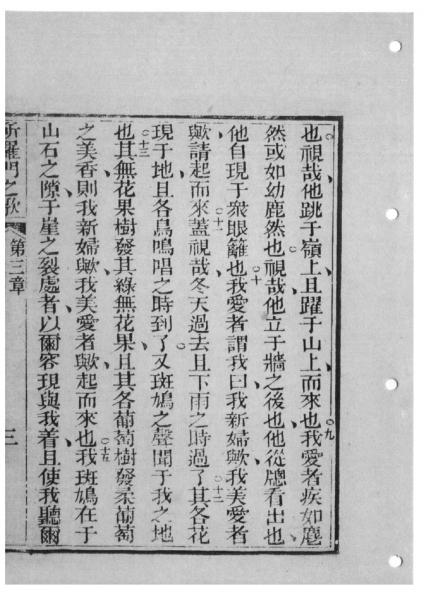 也視哉他跳于嶺上且躍于山上而來也○九我愛者疾如麈
然或如幼鹿然也視哉他立于牆之後也他從牕看出也
他自現于衆眼籬也○十我愛者謂我曰我新婦歟我美愛者
歟請起而來○十一蓋視哉冬天過去且下雨之時過了○十二其各花
現于地且各鳥鳴唱之時到了又斑鳩之聲聞于我之地
也○十三其無花果樹發其綠無花果且其各葡萄樹發柔葡萄
之美香則我新婦歟我美愛者歟起而來也○十五我斑鳩在于
山石之隙于崖之裂處者以爾容現與我看且使我聽爾
所羅門之歌 第三章 三